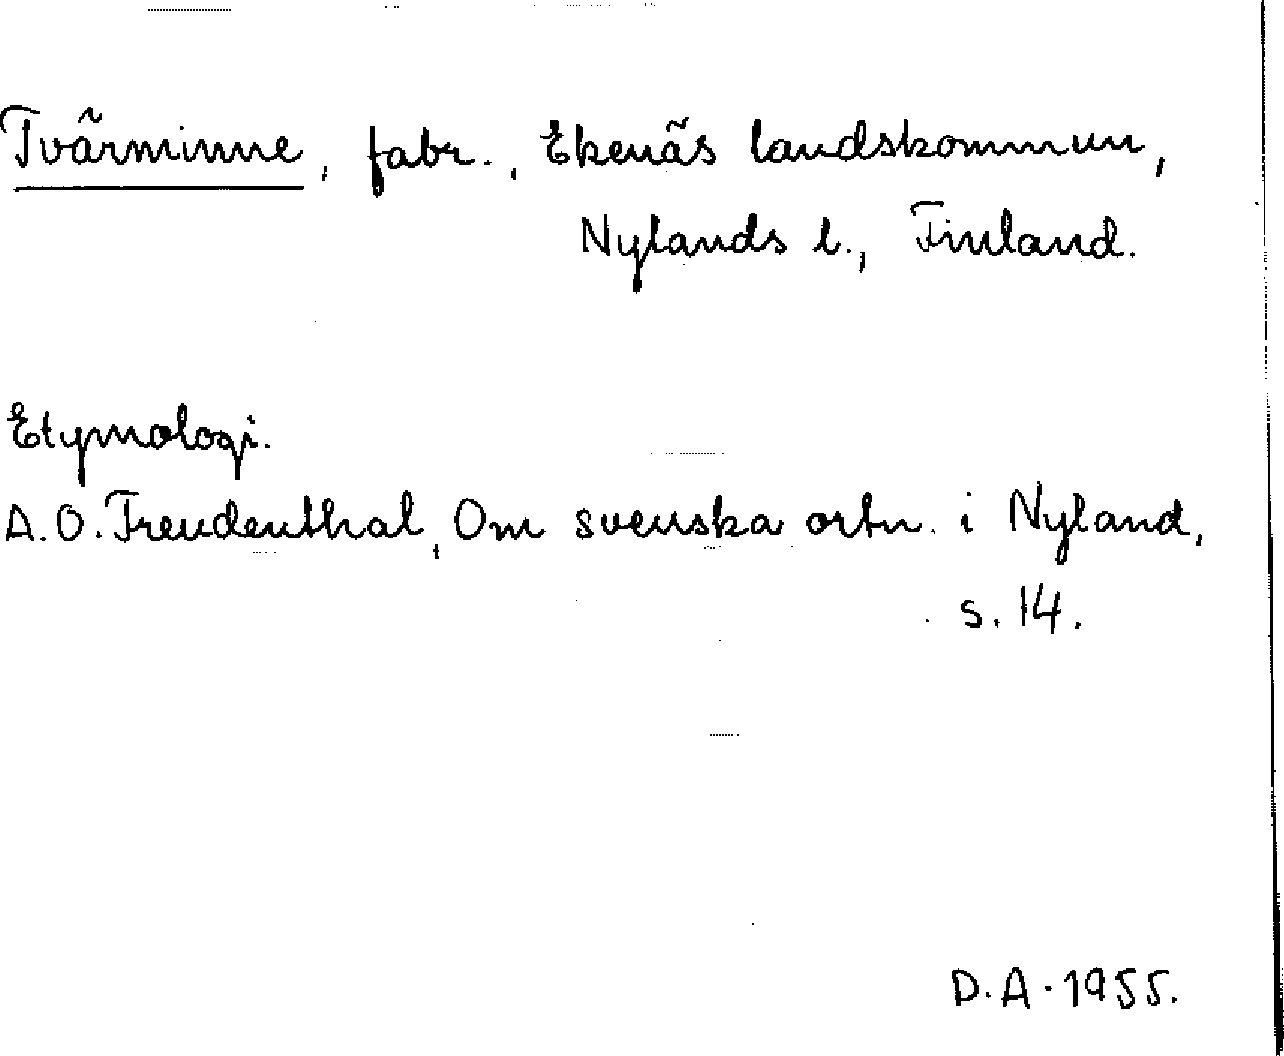 Tvärminne, fabr., Ekenäs landskommun,
Nylands l., Finland.
Etymologi.
A. O. Freudenthal, Om svenska ortn. i Nyland,
s. 14.
D. A. 1955.